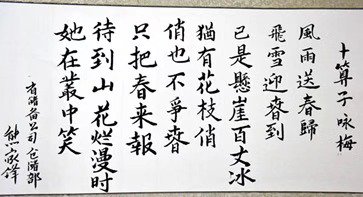 卜算子咏梅
風雨送春歸
飛雪迎春到
已是懸崖百丈冰
猶有花枝俏
俏也不爭春
只把春来報
待到山花烂漫时
她在叢中笑
省儲备公司仓儲部